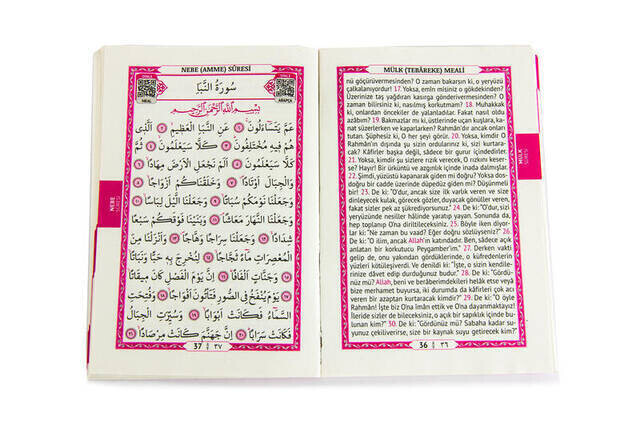 MÜLK (TEBÂREKE) MEALİ
nü göçürüvermesinden? O zaman bakarsın ki, o yeryüzü
çalkalanıyordur! 17. Yoksa, emin misiniz o gökdekinden?
Üzerinize taş yağdıran kasırga gönderivermesinden? O
zaman bilirsiniz ki, nasılmış korkutmam? 18. Muhakkak
ki, onlardan öncekiler de yalanladılar. Fakat nasıl oldu
azâbım? 19. Bakmazlar mı ki, üstlerinde uçan kuşlara, ka-
nat süzerlerken ve kaparlarken? Rahmân'dır ancak onları
tutan. Şüphesiz ki, O her şeyi görür. 20. Yoksa, kimdir O
Rahmân'ın dışında şu sizin ordularınız ki, sizi kurtara-
cak? Kâfirler başka değil, sâdece bir gurur içindedirler.
21. Yoksa, kimdir şu sizlere rızık verecek, O rızkını kese-
rse? Hayır! Bir ürküntü ve azgınlık içinde inada dalmışlar.
22. Şimdi, yüzüstü kapanarak giden mi doğru? Yoksa dos-
doğru bir cadde üzerinde düpedüz giden mi? Düşünmeli
bir! 23. De ki: "O'dur, ancak size ilk varlık veren ve size
dinleyecek kulak, görecek gözler, duyacak gönüller veren,
fakat sizler pek az şükrediyorsunuz." 24. De ki: "O'dur, sizi
yeryüzünde nesiller hâlinde yaratıp yayan. Sonunda da,
hep toplanıp O'na diriltileceksiniz. 25. Böyle iken diyor-
lar ki: "Ne zaman bu vaad? Eğer doğru sözlüyseniz?" 26.
De ki: "O ilim, ancak Allah'ın katındadır. Ben, sâdece açık
anlatan bir korkutucu Peygamber'im." 27. Derken vakti
gelip de, onu yakından gördüklerinde, o küfredenlerin
yüzleri kötüleşiverdi. Ve denildi ki: "İşte, o sizin kendile-
rinizce dâvet edip durduğunuz budur." 28. De ki: "Gördü-
nüz mü? Allah, beni ve berâberimdekileri helâk etse veya
bize merhamet buyursa, iki durumda da kâfirleri çok acı
veren bir azaptan kurtaracak kimdir?" 29. De ki: "O öyle
Rahmân! İşte biz O'na îmân ettik ve O'na dayanmaktayız!
İleride sizler de bileceksiniz, o açık bir sapıklık içinde bu-
lunan kim?" 30. De ki: "Gördünüz mü? Sabaha kadar su-
yunuz çekiliverirse, size bir kaynak suyu getirecek kim?"
MÜLK
SÛRESİ
36 ٣٦
NEBE (AMME) SÛRESİ
DİNLE
MEAL
سُورَةُ النَّبَأِ
DİNLE
ARAPÇA
بِسْمِ اللّٰهِ الرَّحْمٰنِ الرَّحِيمِ
عَمَّ يَتَسَاءَلُونَ ١ عَنِ النَّبَأِ الْعَظِيمِ ٢ اَلَّذِي
هُمْ فِيهِ مُخْتَلِفُونَ ٣ كَلَّا سَيَعْلَمُونَ ٤ ثُمَّ
كَلَّا سَيَعْلَمُونَ ٥ اَلَمْ نَجْعَلِ الْاَرْضَ مِهَادًا ٦
وَالْجِبَالَ اَوْتَادًا ٧ وَخَلَقْنَاكُمْ اَزْوَاجًا ٨
وَجَعَلْنَا نَوْمَكُمْ سُبَاتًا ٩ وَجَعَلْنَا الَّيْلَ لِبَاسًا ١٠
وَجَعَلْنَا النَّهَارَ مَعَاشًا ١١ وَبَنَيْنَا فَوْقَكُمْ سَبْعًا
شِدَادًا ١٢ وَجَعَلْنَا سِرَاجًا وَهَّاجًا ١٣ وَاَنْزَلْنَا مِنَ
الْمُعْصِرَاتِ مَاءً ثَجَّاجًا ١٤ لِنُخْرِجَ بِهِ حَبًّا وَنَبَاتًا ١٥
وَجَنَّاتٍ اَلْفَافًا ١٦ اِنَّ يَوْمَ الْفَصْلِ كَانَ مِيقَاتًا ١٧
يَوْمَ يُنْفَخُ فِي الصُّورِ فَتَأْتُونَ اَفْوَاجًا ١٨ وَفُتِحَتِ
السَّمَاءُ فَكَانَتْ اَبْوَابًا ١٩ وَسُيِّرَتِ الْجِبَالُ
فَكَانَتْ سَرَابًا ٢٠ اِنَّ جَهَنَّمَ كَانَتْ مِرْصَادًا ٢١
NEBE
SÛRESİ
37 ٣٧